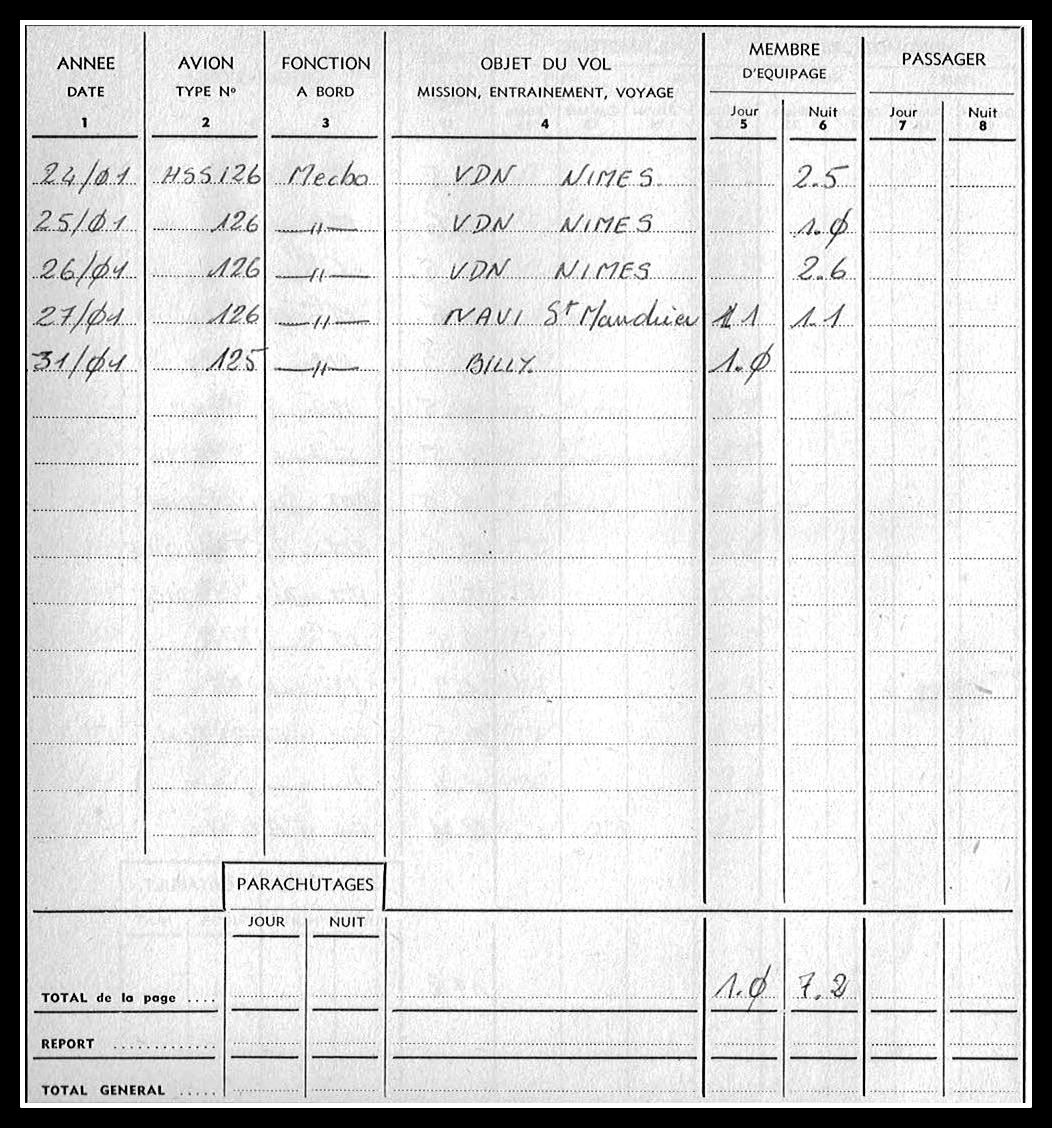 ANNEE AVION FONCTION OBJET DU VOL MEMBRE D'EQUIPAGE PASSAGER
DATE TYPE Nº A BORD MISSION, ENTRAINEMENT, VOYAGE Jour Nuit Jour Nuit
1 2 3 4 5 6 7 8
24/01 HSS.126 Mecbo VDN NIMES 2.5
25/01 126 —〃— VDN NIMES 1.0
26/01 126 —〃— VDN NIMES 2.6
27/01 126 —〃— NAVI St Mandrier 1.1
31/01 125 —〃— BILLY. 1.0
PARACHUTAGES
JOUR NUIT
TOTAL de la page .... 1.0 7.2
REPORT .............
TOTAL GENERAL .....